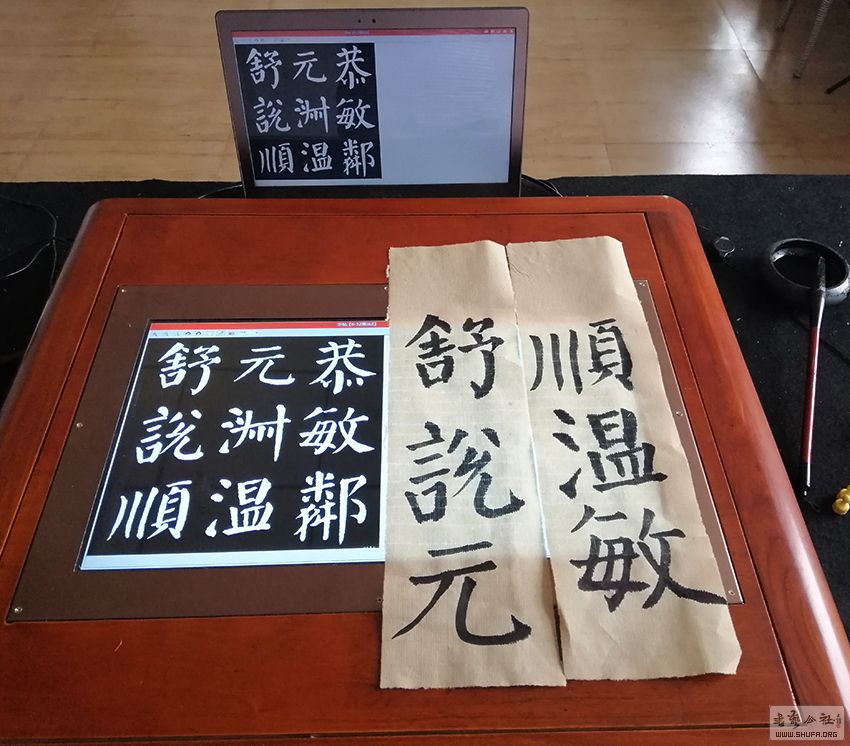 舒元恭
説洲敏
順温鄰
舒元恭
説洲敏
順温鄰
舒説元
順温敏
書藝公社
WWW.SHUFA.ORG